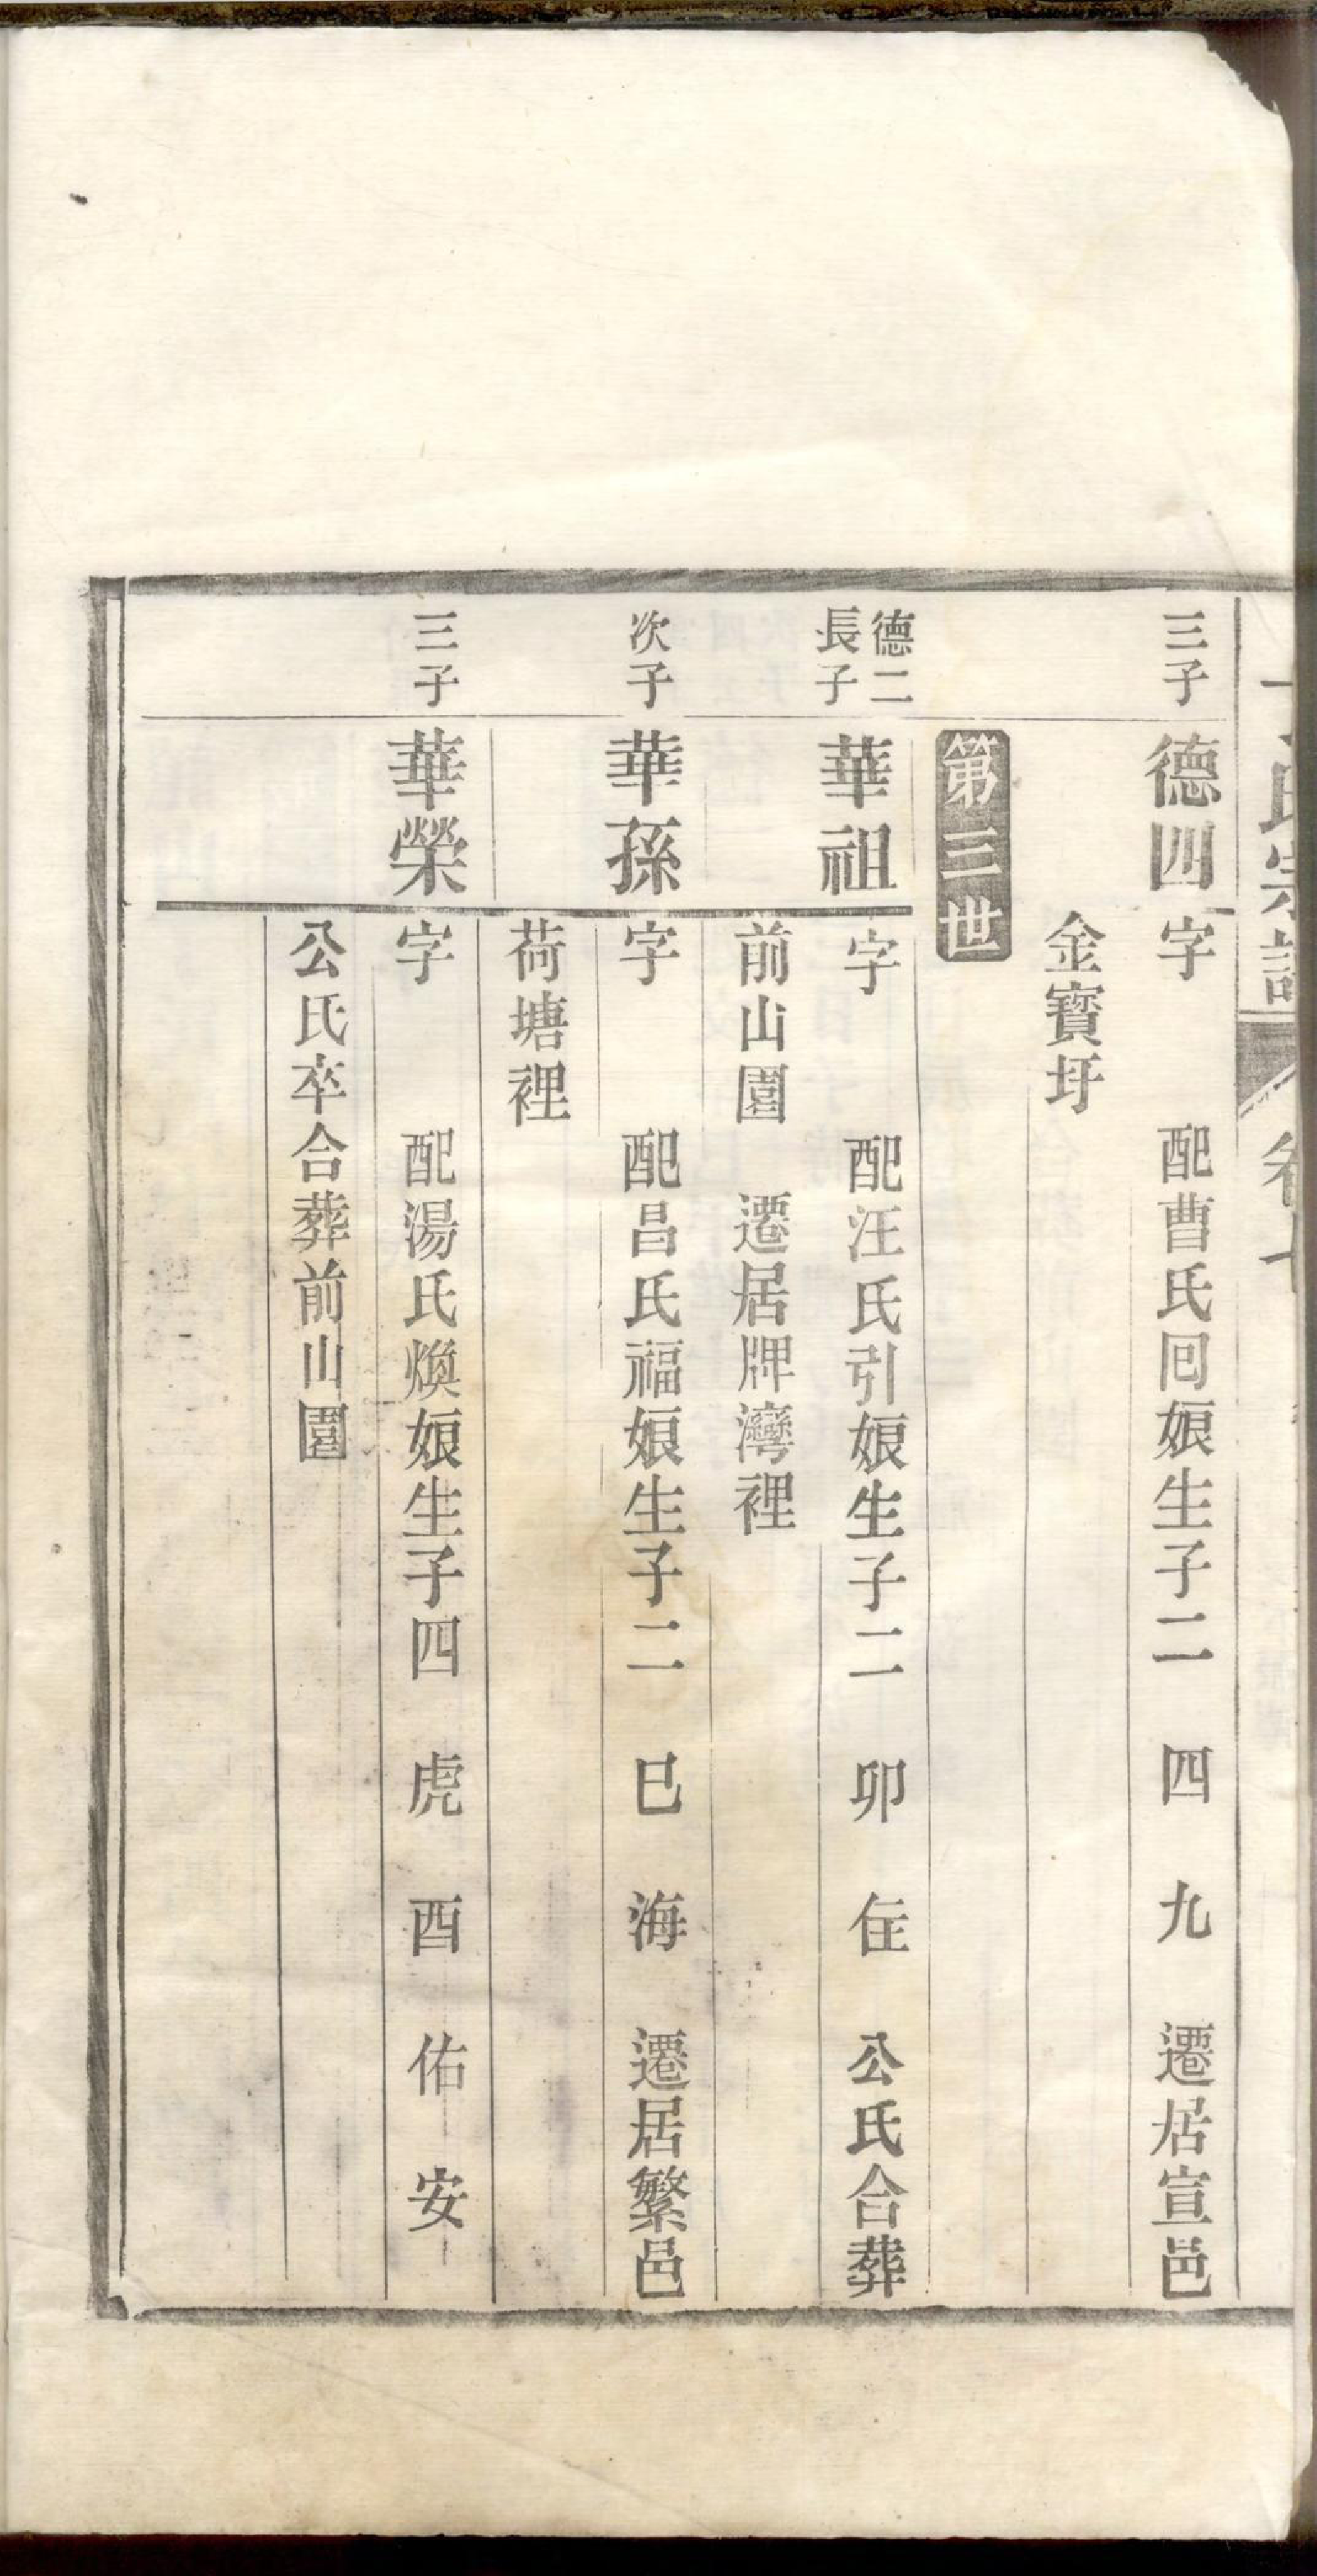 氏宗譜 卷
三子 德四 字 配曹氏囘娘生子二 四 九 遷居宣邑
金寶圩
第三世
德二長子 華祖 字 配汪氏引娘生子二 卯 住 公氏合葬
前山園 遷居牌灣裡
次子 華孫 字 配昌氏福娘生子二 巳 海 遷居繁邑
荷塘裡
三子 華榮 字 配湯氏煥娘生子四 虎 酉 佑 安
公氏卒合葬前山園